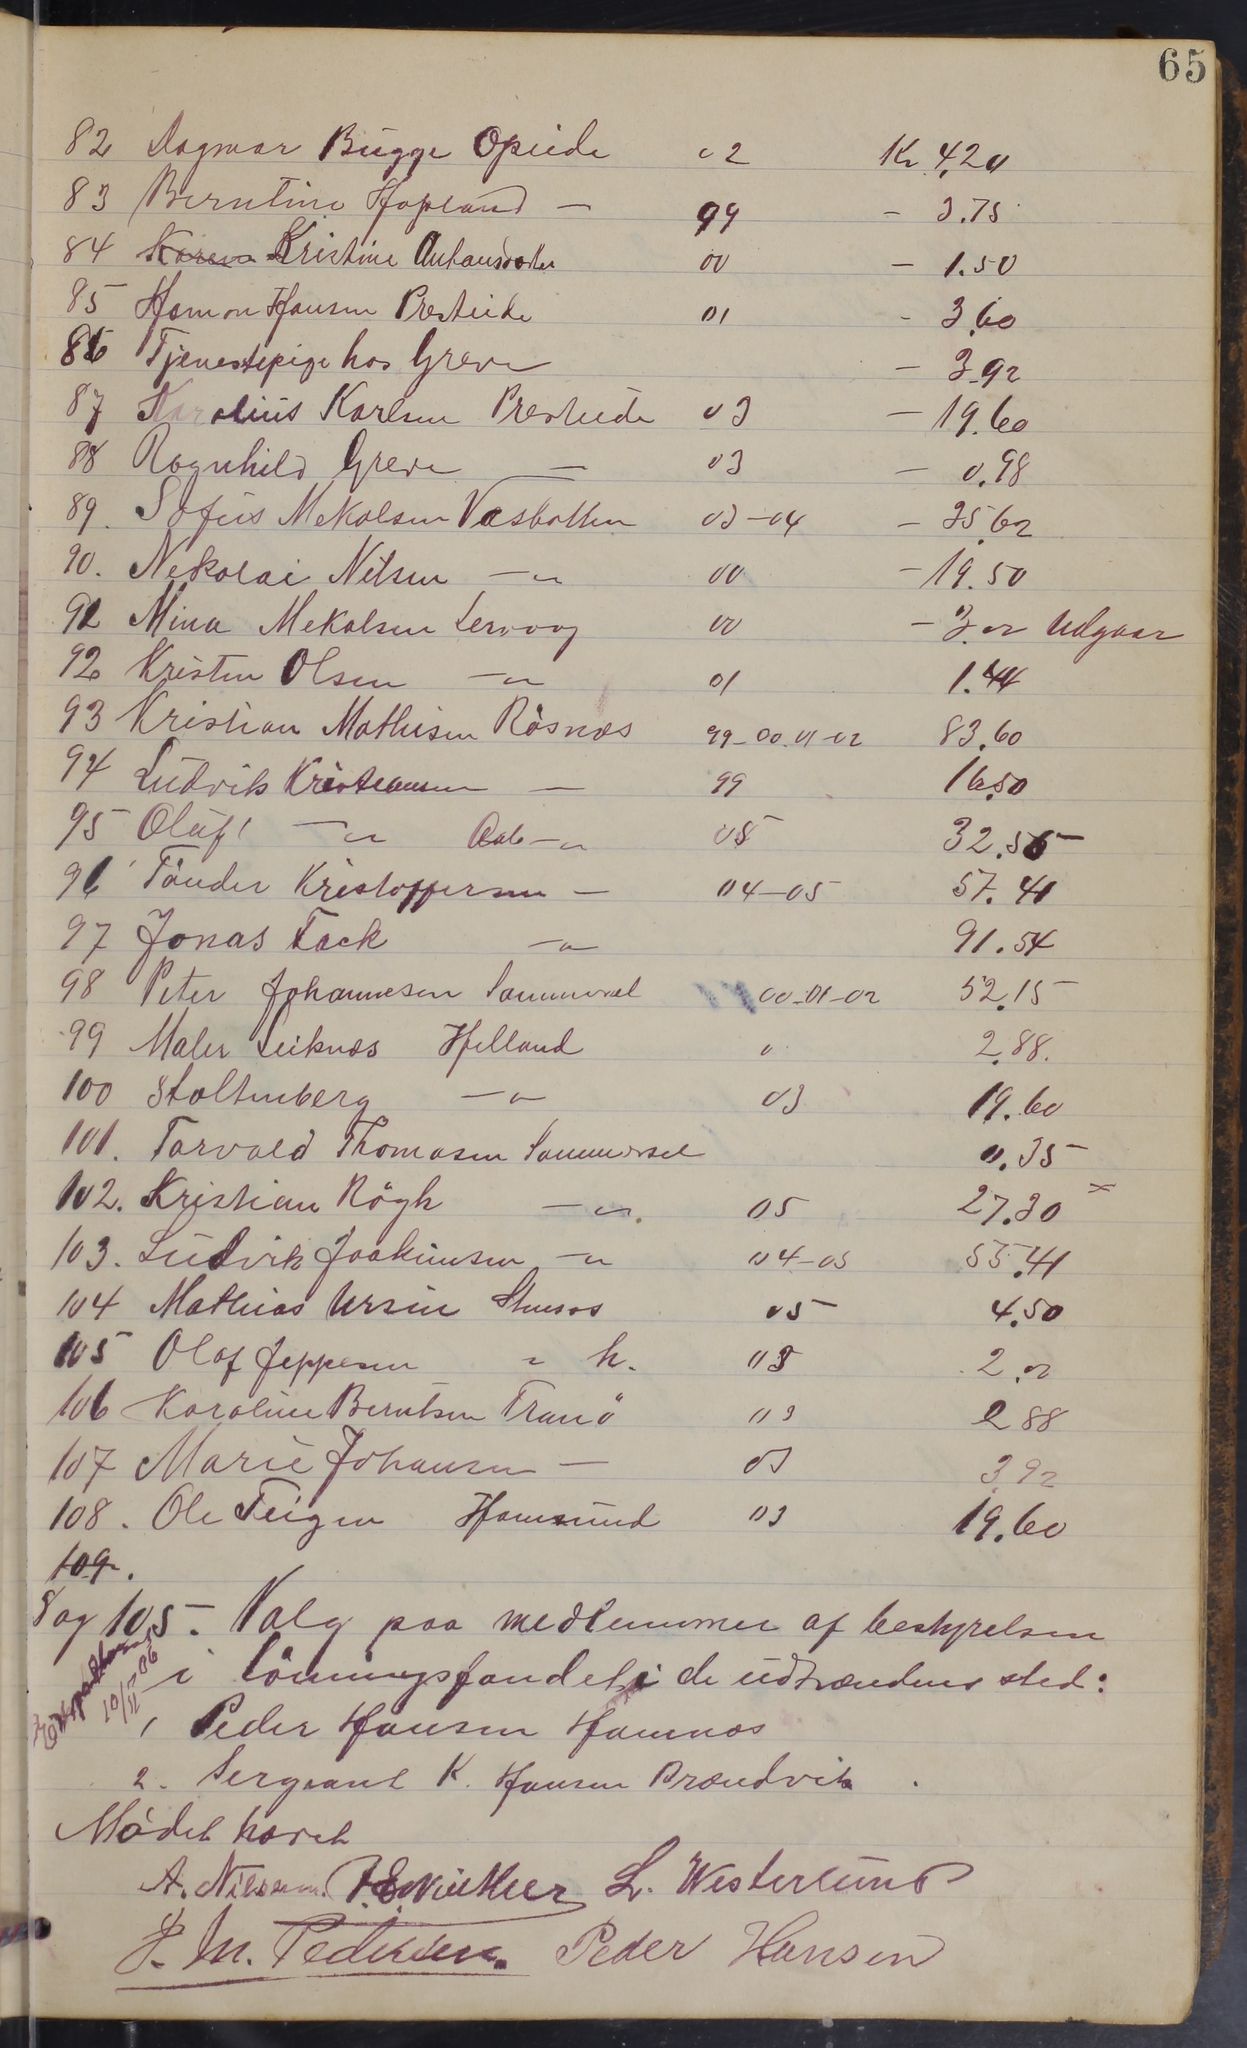 65
82 Dagmar Bugge Opeide 02 Kr 4.20
83 Berntine Hopland — 99 – 3.75
84 Karen Kristine Antansdatter 00 – 1.50
85 Hamon Hansen Presteide 01 - 3.60
86 Tjenestepige hos Greve – 3.92
87 Karolius Karlsen Presteide 03 – 19.60
88 Ragnhild Greve — 03 – 0.98
89. Sofus Mekalsen Vasbotten 03-04 – 35.62
90. Nekolai Nilsen —"— 00 – 19.50
91 Mina Mekalsen Lervaag 00 – 3.02 Udgaar
92 Kristen Olsen —"— 01 1.44
93 Kristian Mathisen Røsnæs 99-00-01-02 83.60
94 Ludvik Kristiansen — 99 16.50
95 Oluf —"— —"— 05 32.55
96 Tønder Kristoffersen — 04-05 57.41
97 Jonas Fack —"— 91.54
98 Peter Johannesen Sommersel 00-01-02 52.15
99 Maler Leiknæs Helland " 2.88.
100 Stoltenberg —"— 03 19.60
101. Torvald Thomasen Sommersel 0.35
102. Kristian Røgh —"— 05 27.30 x
103. Ludvik Joakimsen —"— 04-05 55.41
104 Mathias Ursin 05 4.50
105 Olaf Jeppesen " h. 03 2.02
106 Karoline Berntsen Tranø 03 2 88
107 Marie Johansen — 03 3.92
108. Ole Teigen Hamsund 03 19.60
109.
Sag 105. Valg paa medlemmer af bestyrelsen
i lønningsfondet i de udtrædendes sted:
1 Peder Hansen Hamnæs
2. Sergeant K. Hansen Brændvik.
Mødet hævet
A. Nilssen. L. Westerlund
P. M. Pedersen. Peder Hansen